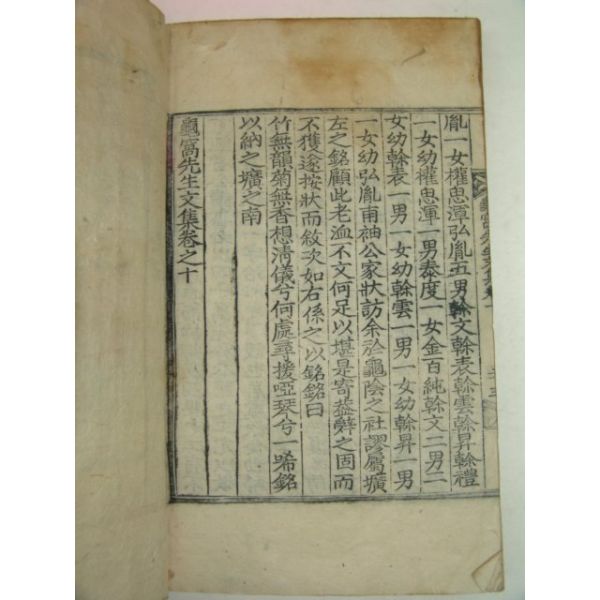 胤一女權思漳弘胤五男榦文榦表榦雲榦昇榦禮
一女幼權思渾一男泰度一女金百純榦文二男二
女幼榦表一男一女幼榦雲一男一女幼榦昇一男
一女幼弘胤甫袖公家狀訪余於龜陰之社謬屬壙
左之銘顧此老洫不文何足以堪是寄益辭之固而
不獲遂按狀而敘次如右係之以銘銘曰
竹無韻菊無香想淸儀兮何處尋援啞琴兮一唏銘
以納之壙之南
龜窩先生文集卷之十